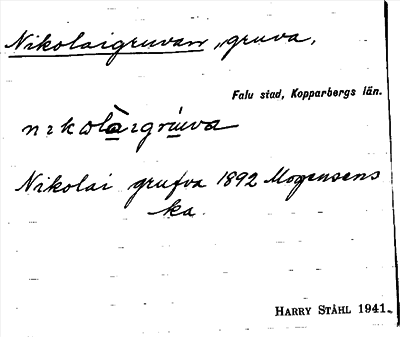 Nikolaigruvan, gruva,
Falu stad, Kopparbergs län.
nıkolàıgrúva
Nikolai grufva 1892 Mogensens
ka.
HARRY STÅHL 1941.